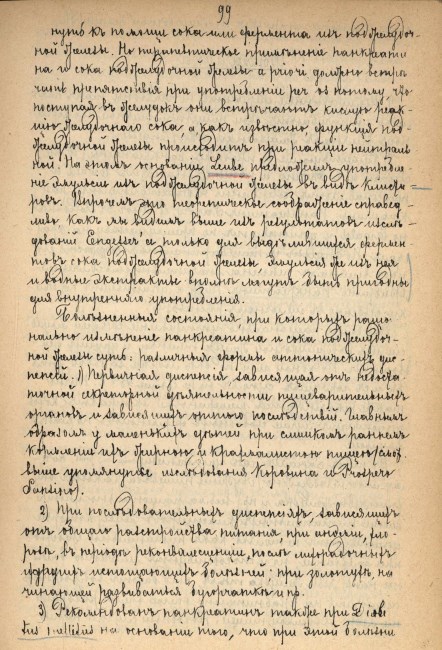 99
нуть къ помощи сока или фермента изъ поджелудоч-
ной железы. Но терапевтическое примѣненіе панкреати
на и сока поджелудочной железы a priori должно встрѣ
чать препятствія при употребленіи per os потому что
поступая въ желудокъ они встрѣчаютъ кислую реак-
цію желудочнаго сока, а какъ извѣстно, функція под-
желудочной железы происходитъ при реакціи нейтраль-
ной. На этомъ основаніи Leube предложилъ употребле-
ніе эмульсіи изъ поджелудочной железы въ видѣ клисти-
ровъ. Впрочемъ это теоретическое соображеніе справед-
ливо, какъ мы видѣли выше изъ результатовъ изслѣ-
дованій Engesser'а только для выдѣлившихся фермен-
товъ сока поджелудочной железы, эмульсія же изъ нея
и водные экстракты вполнѣ могутъ быть пригодны
для внутренняго употребленія.
Болѣзненныя состоянія при которыхъ раціо-
нально примѣненіе панкреатина и сока поджелудоч-
ной железы суть: различныя формы атоническихъ дис-
пепсій. 1) Первичная диспепсія зависящая отъ недоста-
точной секреторной дѣятельности пищеварительныхъ
органовъ и зависящихъ отъ того послѣдствій. Главнымъ
образомъ у маленькихъ дѣтей при слишкомъ раннемъ
кормленіи ихъ жирною и крахмалистою пищею (смотр.
выше упомянутые изслѣдованія Коровина и
2) При послѣдовательныхъ диспепсіяхъ, зависящихъ
отъ общаго разстройства питанія при анэміи, хло-
розѣ, въ періодѣ реконвалесценціи, послѣ лихорадочныхъ
и другихъ истощающихъ болѣзней; при золотухѣ, на-
чинающей развиваться бугорчаткѣ и пр.
3) Рекомендованъ панкреатинъ также при Diabe
tus mellitus на основаніи того, что при этой болѣзни